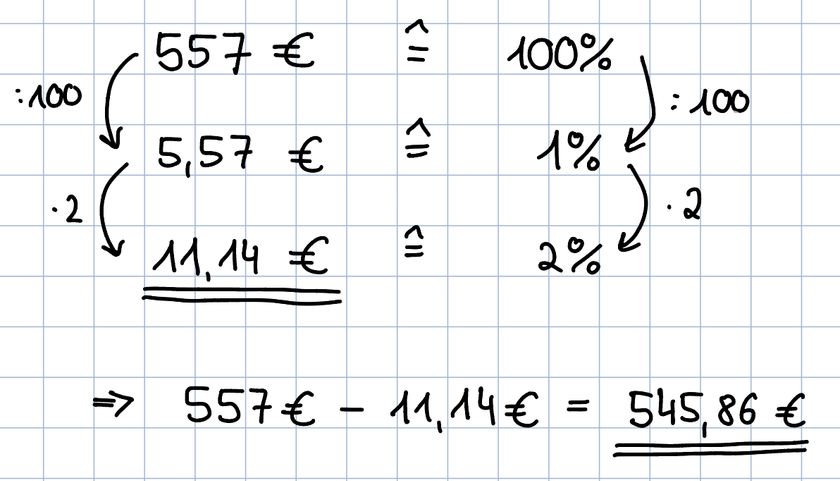 557 € ≙ 100%
:100 :100
5,57 € ≙ 1%
·2 ·2
11,14 € ≙ 2%
⇒ 557€ − 11,14€ = 545,86 €